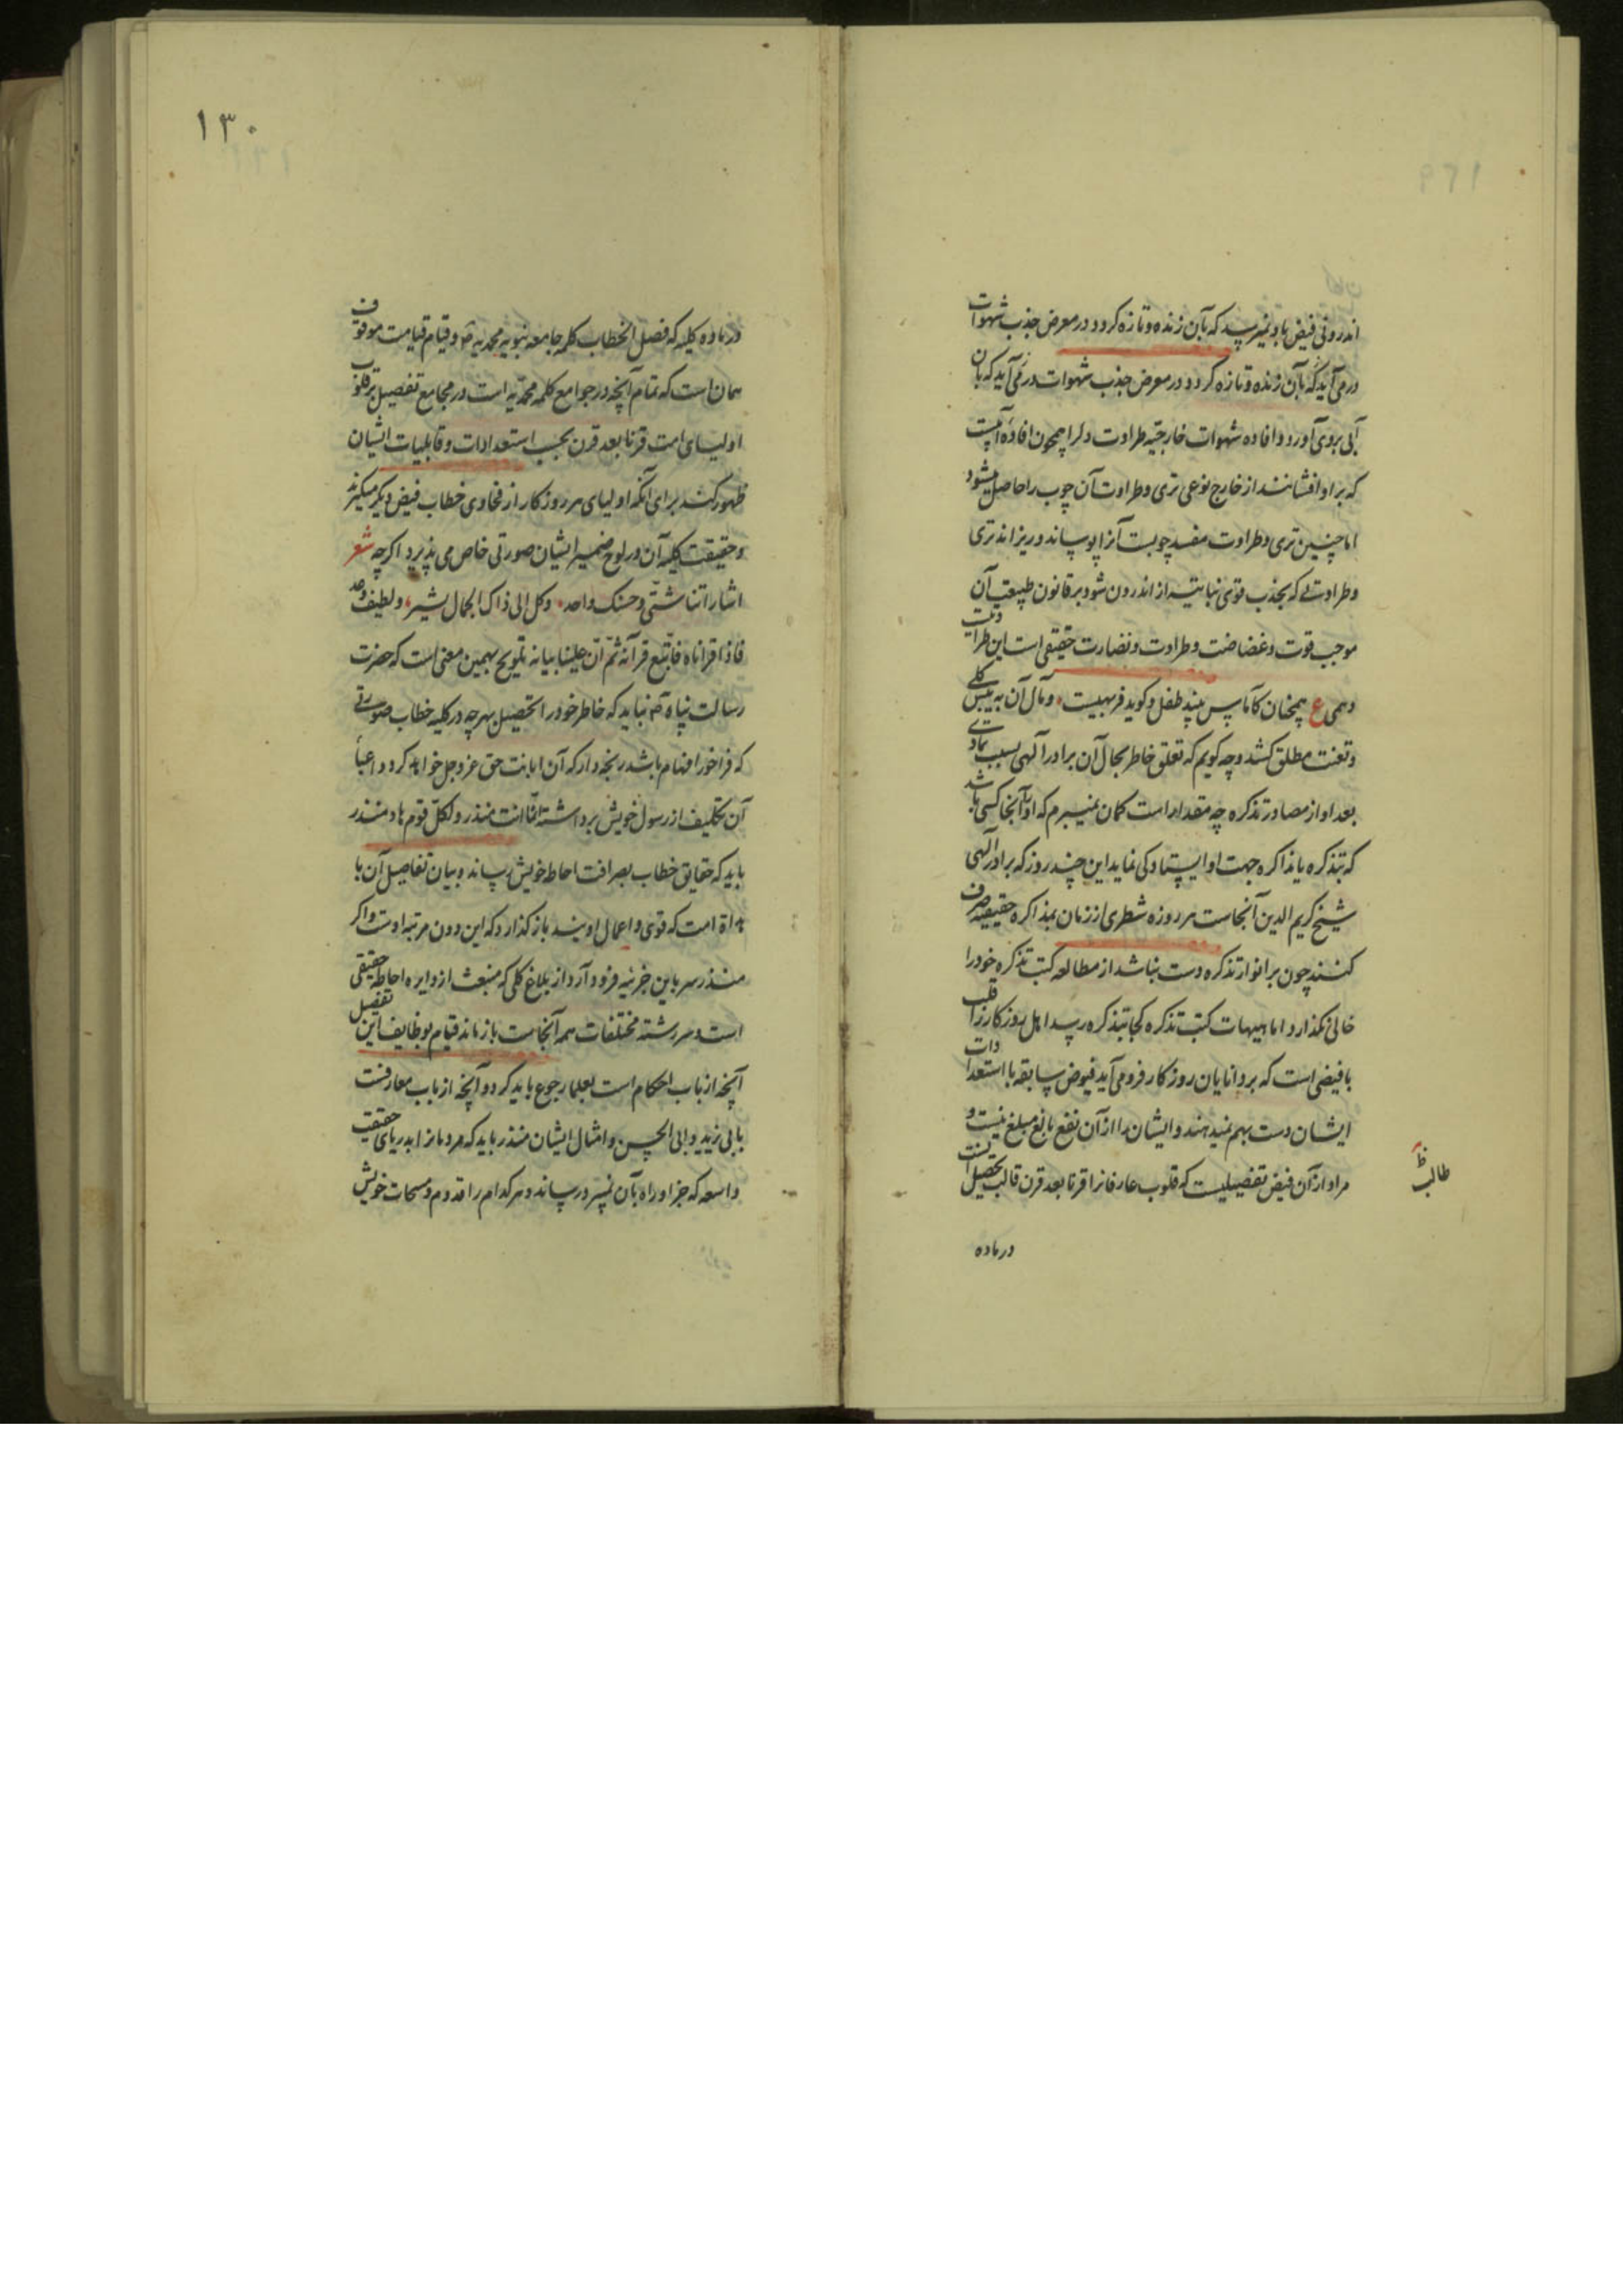 اندرونی فیض باو نمیرسد که بآن زنده و تازه کردد در معرض جذب شهوات
درمی‌آید که بآن زنده و تازه کردد در معرض جذب شهوات درمی‌آید که بان
آبی بروی آورد و افاده شهوات خارجیه طراوت دل را همچون افاده آبیست
که بر او افشانند از خارج نوعی تری و طراوت آن چوب را حاصل میشود
اما چنین تری و طراوت مفسد چوبست آنرا پوساند و ریزاند تری
و طراوت که بجذب قوی نباتیه از اندرون شود بر قانون طبیعت آن
موجب قوت و غضاضت و طراوت و نضارت حقیقی است این طراوت
وهمی ع همچنان کآماس بیند طفل و کوید فربهیست و مآل آن به یبس کلی
و تعنت مطلق کشد و چه کویم که تعلق خاطر بحال آن برادر آلهی بسبب تمادی
بعد او از مصادر تذکره چه مقدار است کمان نمیبرم که او را آنجا کسی باشد
که بتذکره یا مذاکره جهت او ایستادکی نماید این چند روز که برادر آلهی
شیخ کریم الدین آنجاست هر روزه شطری از زمان بمذاکره حقیقیه صرف
کنند چون بر انوار تذکره دست نباشد از مطالعه کتب تذکره خود را
خالی نکذارد اما هیهات کتب تذکره کجا بتذکره رسد اهل روزکار را قلب
با فیضی است که بر دانایان روزکار فرومی‌آید فیوض سابقه با استعدادات
ایشان دست بهم نمیدهند و ایشان را از آن نفع بالغ مبلغ نیست و
مراد از آن فیض تفصیلیست که قلوب عارفانرا قرنا بعد قرن قالب تحصیل آنست
طالب ظ
در ماده
١٣٠
در ماده کلیه که فصل الخطاب کلمه جامعه نبویه محمدیه و قیام قیامت موقوف
همان است که تمام آنچه در جوامع کلمه محمدیه است در مجامع تفصیل بر قلوب
اولیای امت قرنا بعد قرن بحسب استعدادات و قابلیات ایشان
ظهور کند برای آنکه اولیای هر روزکار از فحاوی خطاب فیض دیکر میکیرند
و حقیقت کلیه آن در لوح ضمیر ایشان صورتی خاص می‌پذیرد اکرچه شعر
اشاراتنا شتی و حسنک واحد وکل الی ذاک الجمال یشیر و لطیفه
فاذا قراناه فاتبع قرآنه ثم ان علینا بیانه تلویح بهمین معنی است که حضرت
رسالت پناه نباید که خاطر خود را تحصیل بهرچه در کلیه خطاب صورتی
که فراخور افهام باشد رنجه دارد که آن ابانت حق عز و جل خواهد کرد و اعبا
آن تکلیف از رسول خویش برداشته انما انت منذر ولکل قوم هاد منذر
باید که حقایق خطاب بصرافت احاطه خویش رساند و بیان تفاصیل آن با
هداة امت که قوی و اعمال اویند بازکذارد که این دون مرتبه اوست و اکر
منذر سر باین جزئیه فرود آرد از بلاغ کلی که منبعث از دایره احاطه حقیقی
است و سررشته مختلفات همه آنجاست بازماند قیام بوظایف این تفصیل
آنچه از باب احکام است بعلما رجوع باید کرد و آنچه از باب معارفست
بابی زید و ابی الحسن و امثال ایشان منذر باید که مردمانرا بدریای حقیقت
واسعه که جز او راه بآن نبرد رساند و هرکدام را قدوم و سحات خویش